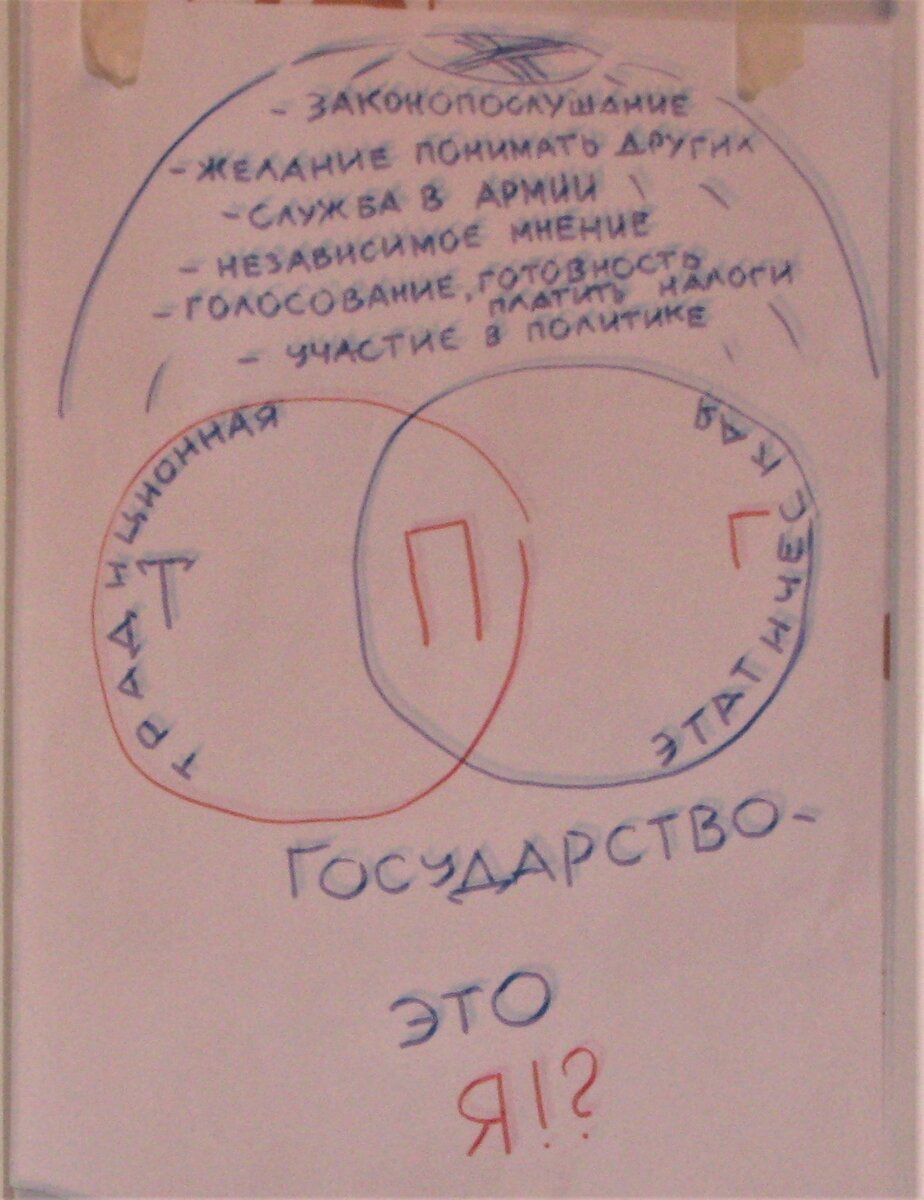 - ЗАКОНОПОСЛУШАНИЕ
- ЖЕЛАНИЕ ПОНИМАТЬ ДРУГИХ
- СЛУЖБА В АРМИИ
- НЕЗАВИСИМОЕ МНЕНИЕ
- ГОЛОСОВАНИЕ, ГОТОВНОСТЬ
ПЛАТИТЬ НАЛОГИ
- УЧАСТИЕ В ПОЛИТИКЕ
ТРАДИЦИОННАЯ
ЭТАТИЧЕСКАЯ
Т
П
Г
ГОСУДАРСТВО-
ЭТО
Я!?